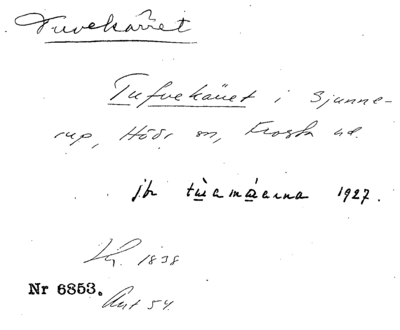 Tuvekärret
Tufvekäret i Sjunne-
rup, Höörs sn, Frosta hd.
jfr tùamáarna 1927.
1838
Nr 6853.
Ant 54.